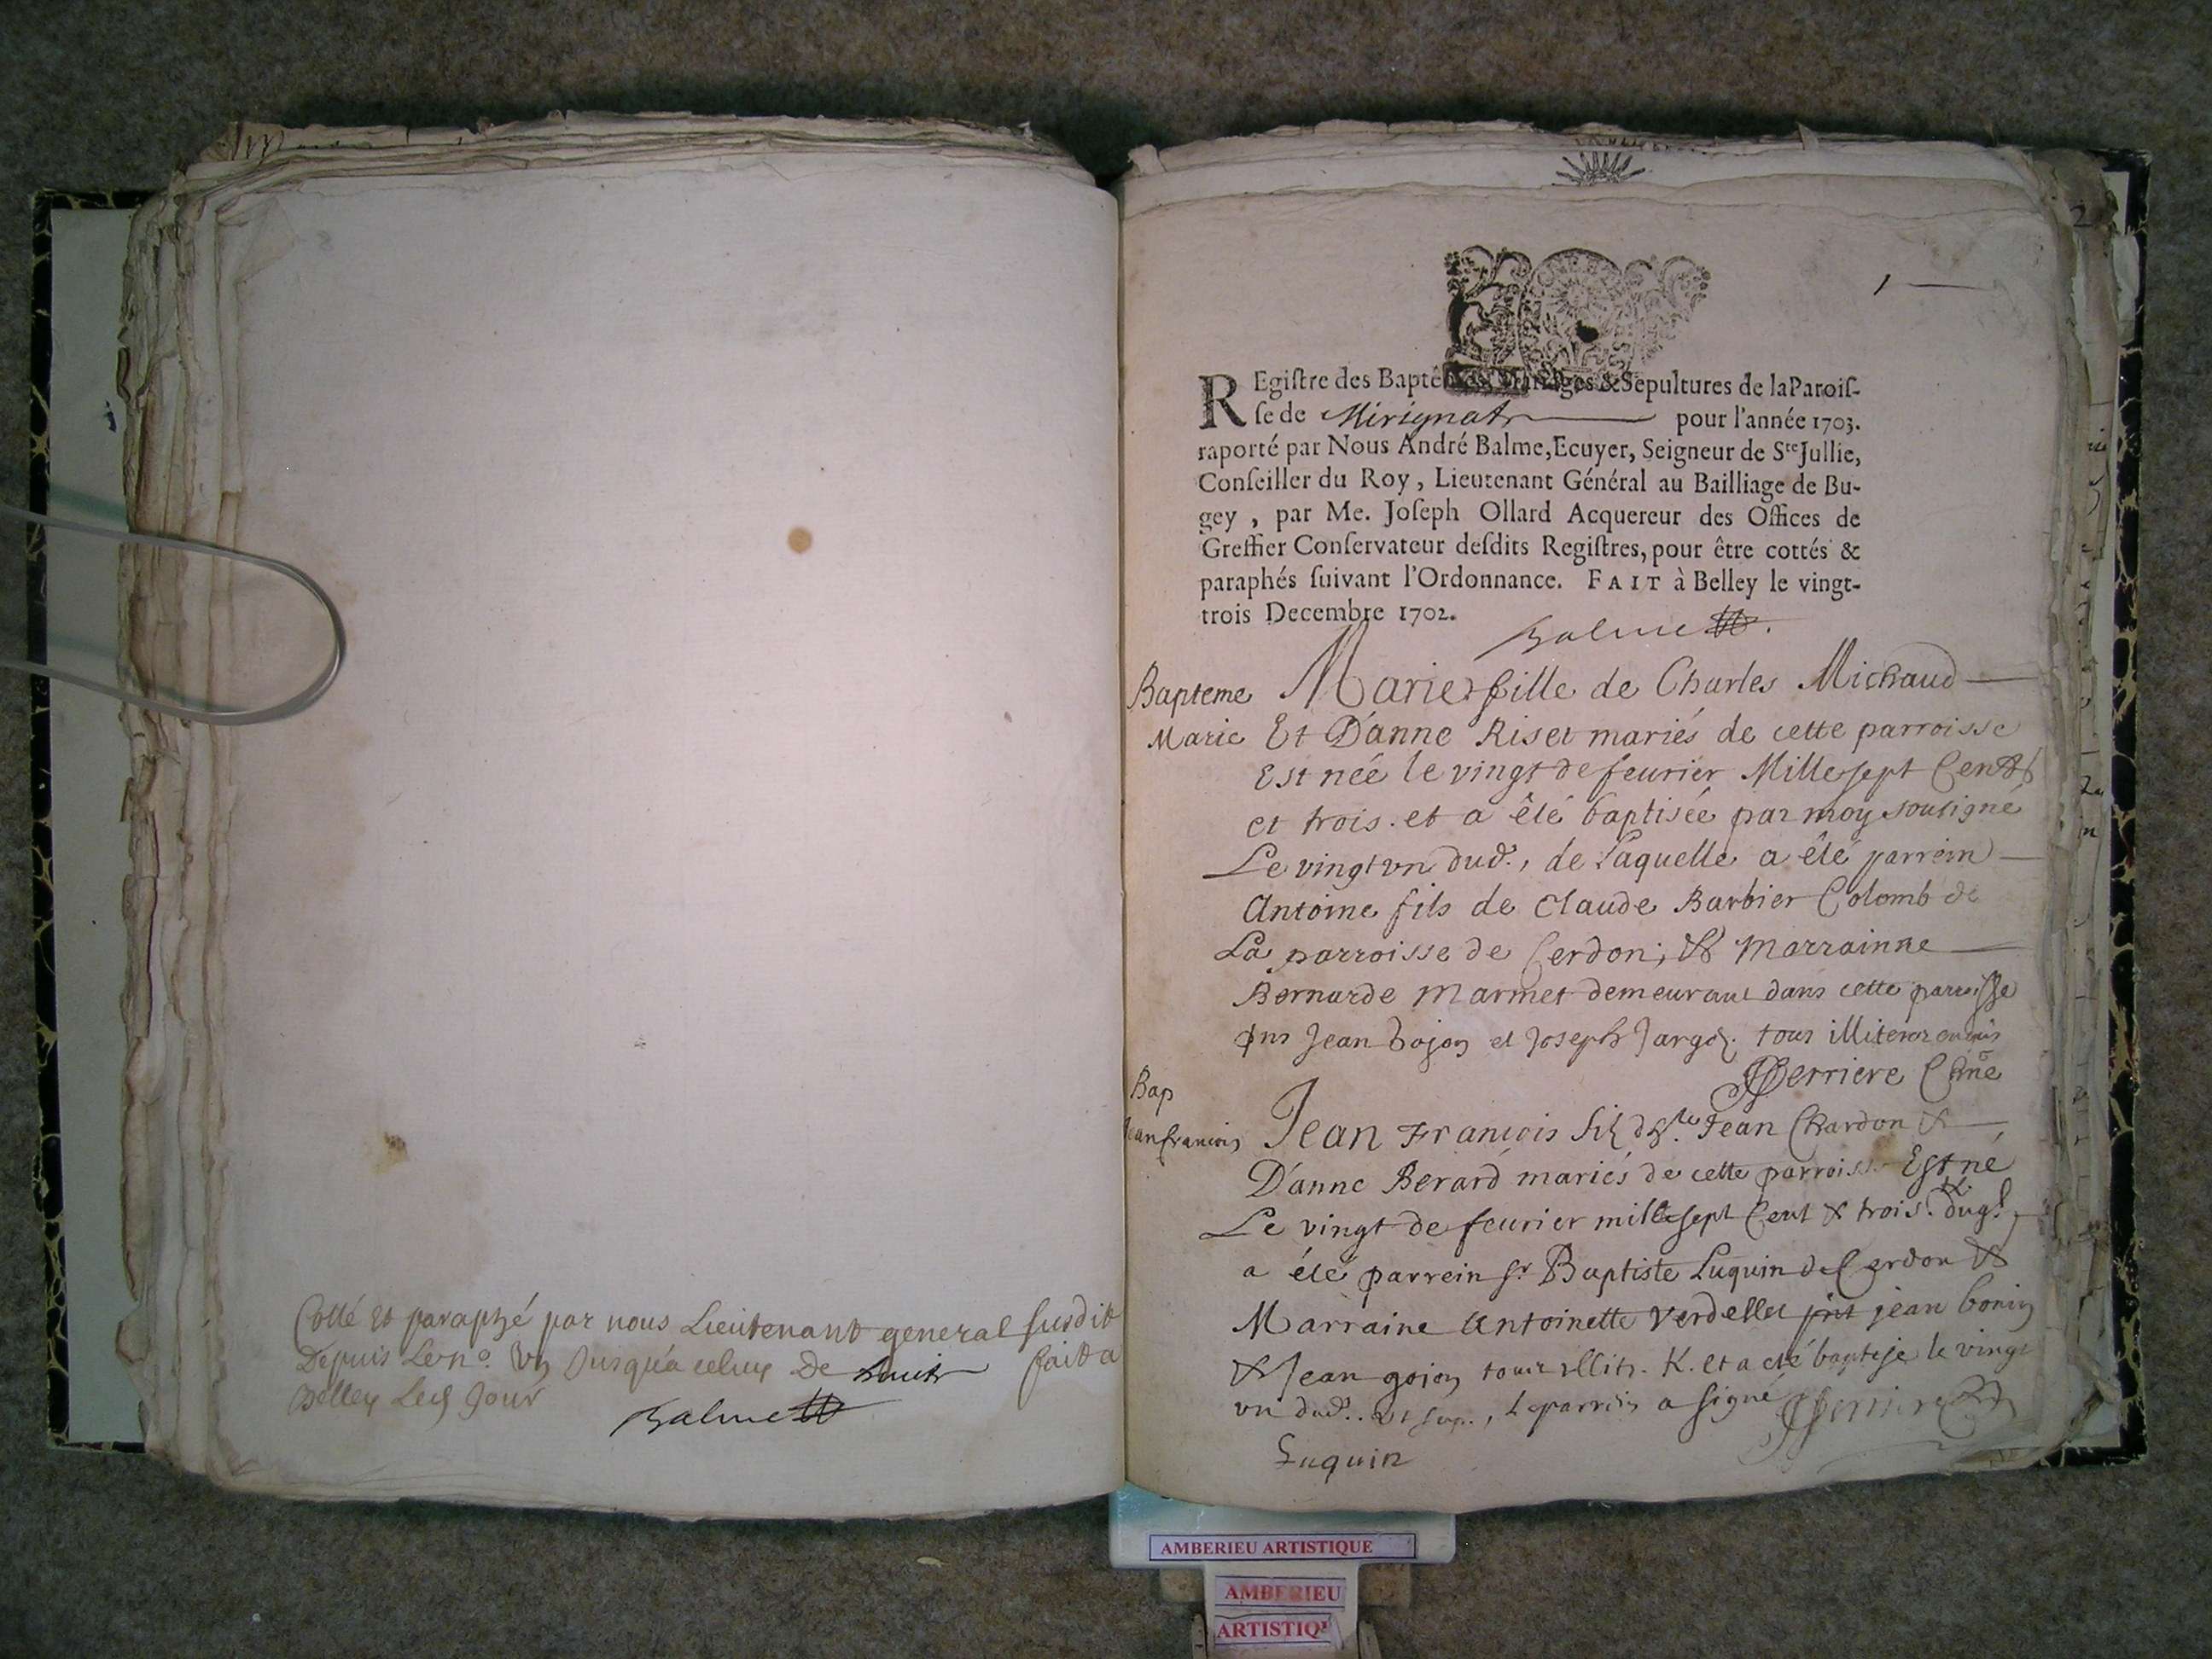 Cotté et paraphé par nous Lieutenant general susdit
Depuis Le no. un Jusqu'a celuy De huit fait a
Belley Lesd Jour
Balme
1
REgistre des Baptêmes, Mariages & Sepultures de la Parois-
se de Mirignat pour l'année 1703.
raporté par Nous André Balme, Ecuyer, Seigneur de Ste Jullie,
Conseiller du Roy, Lieutenant Général au Bailliage de Bu-
gey, par Me. Joseph Ollard Acquereur des Offices de
Greffier Conservateur desdits Registres, pour être cottés &
paraphés suivant l'Ordonnance. FAIT à Belley le vingt-
trois Decembre 1702.
Balme
Bapteme Marie fille de Charles Michaud
Marie Et D'anne Riset mariés de cette parroisse
Est née le vingt de feurier Mille sept Cent
et trois. et a êté baptisée par moy sousigné
Le vingt vn dud., de Laquelle a êté parrein
Antoine fils de Claude Barbier Colomb de
La parroisse de Cerdon; & Marrainne
Bernarde Marmet demeurant dans cette parroisse
pns Jean et Joseph tous
Perriere Curé
Bap
Jean francois Jean Francois fils de Jean Chardon &
D'anne Berard mariés de cette parroisse Est né
Le vingt de feurier mille sept Cent & trois. duql
a été parrein sr Baptiste Luquin de Cerdon &
Marraine Antoinette Verdellet pnt jean bonin
& Jean gojon tous illit. R. et a eté baptisé le vingt
vn dud.. , Le parrein a signé Perriere
Luquin
AMBERIEU ARTISTIQUE
AMBERIEU
ARTISTIQU